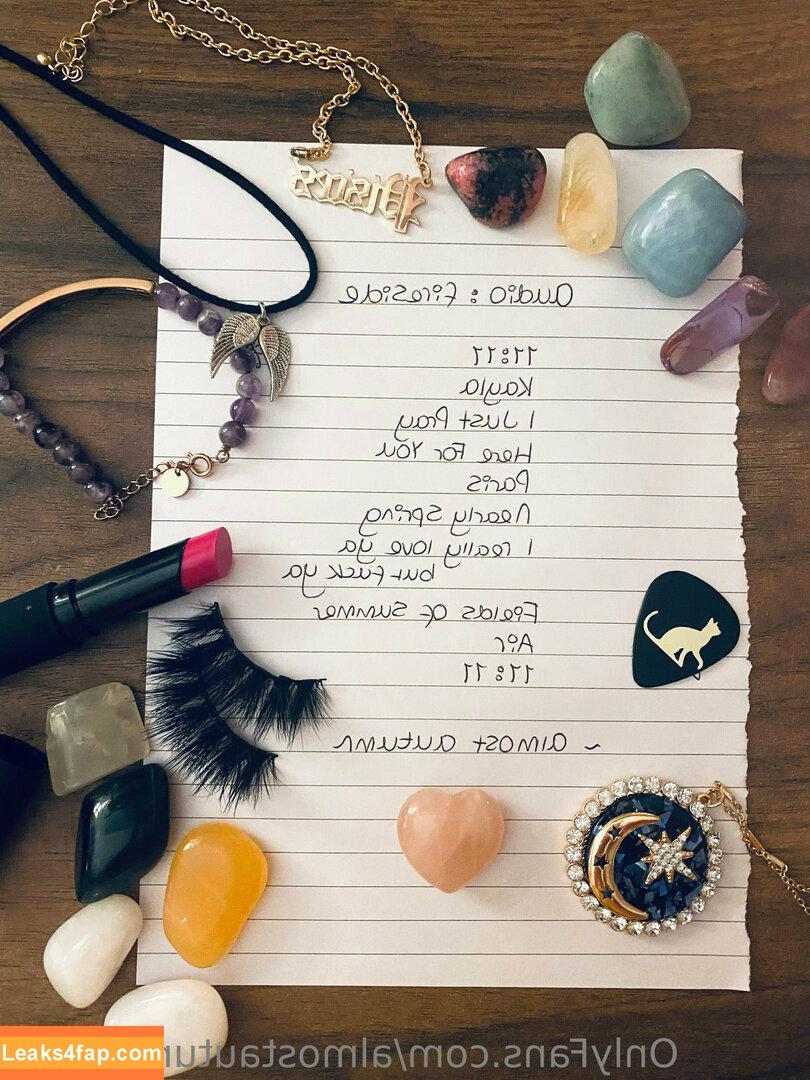 Pisces
Audio : Fireside
11:11
Kayla
I Just Pray
Here For You
Paris
Nearly Spring
I really love ya
but Fuck ya
Fields Of Summer
Air
11:11
~ almost autumn
OnlyFans.com/almostautum
Leaks4fap.com